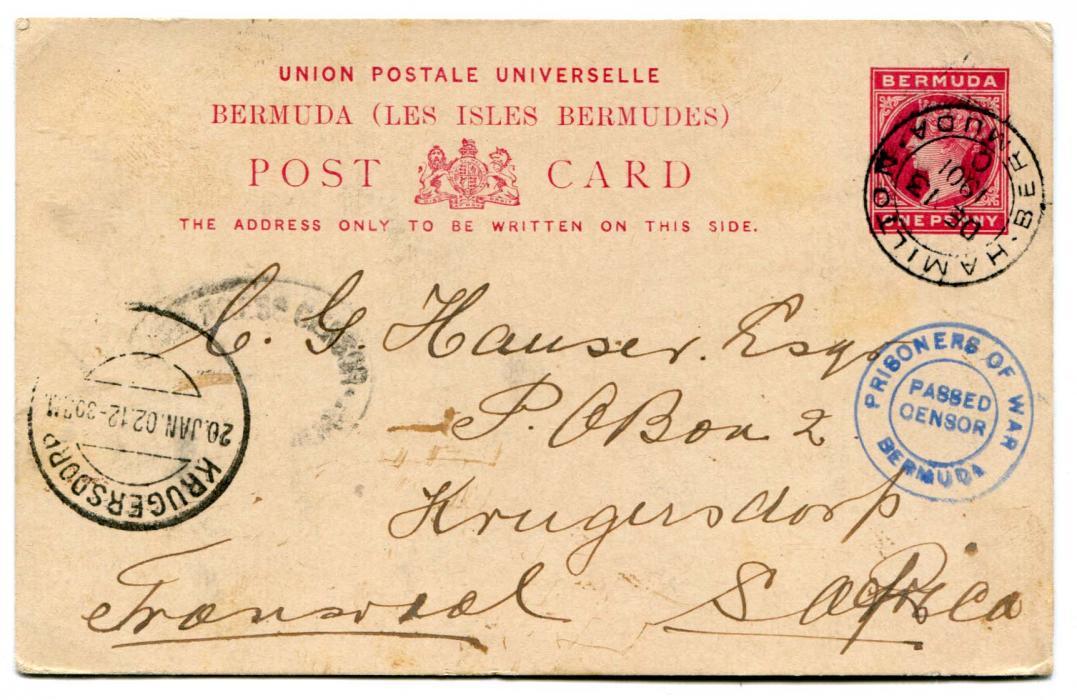 UNION POSTALE UNIVERSELLE
BERMUDA (LES ISLES BERMUDES)
POST CARD
THE ADDRESS ONLY TO BE WRITTEN ON THIS SIDE.
BERMUDA
ONE PENNY
HAMILTON · BERMUDA ·
DE 13
1901
BERMUDA
C. G. Hauser. Esq
P. O Box 2
Krugersdorp
Transvaal S Africa
PRISONERS OF WAR
PASSED
CENSOR
BERMUDA
CENSOR
20. JAN. 02. 12-30
KRUGERSDORP